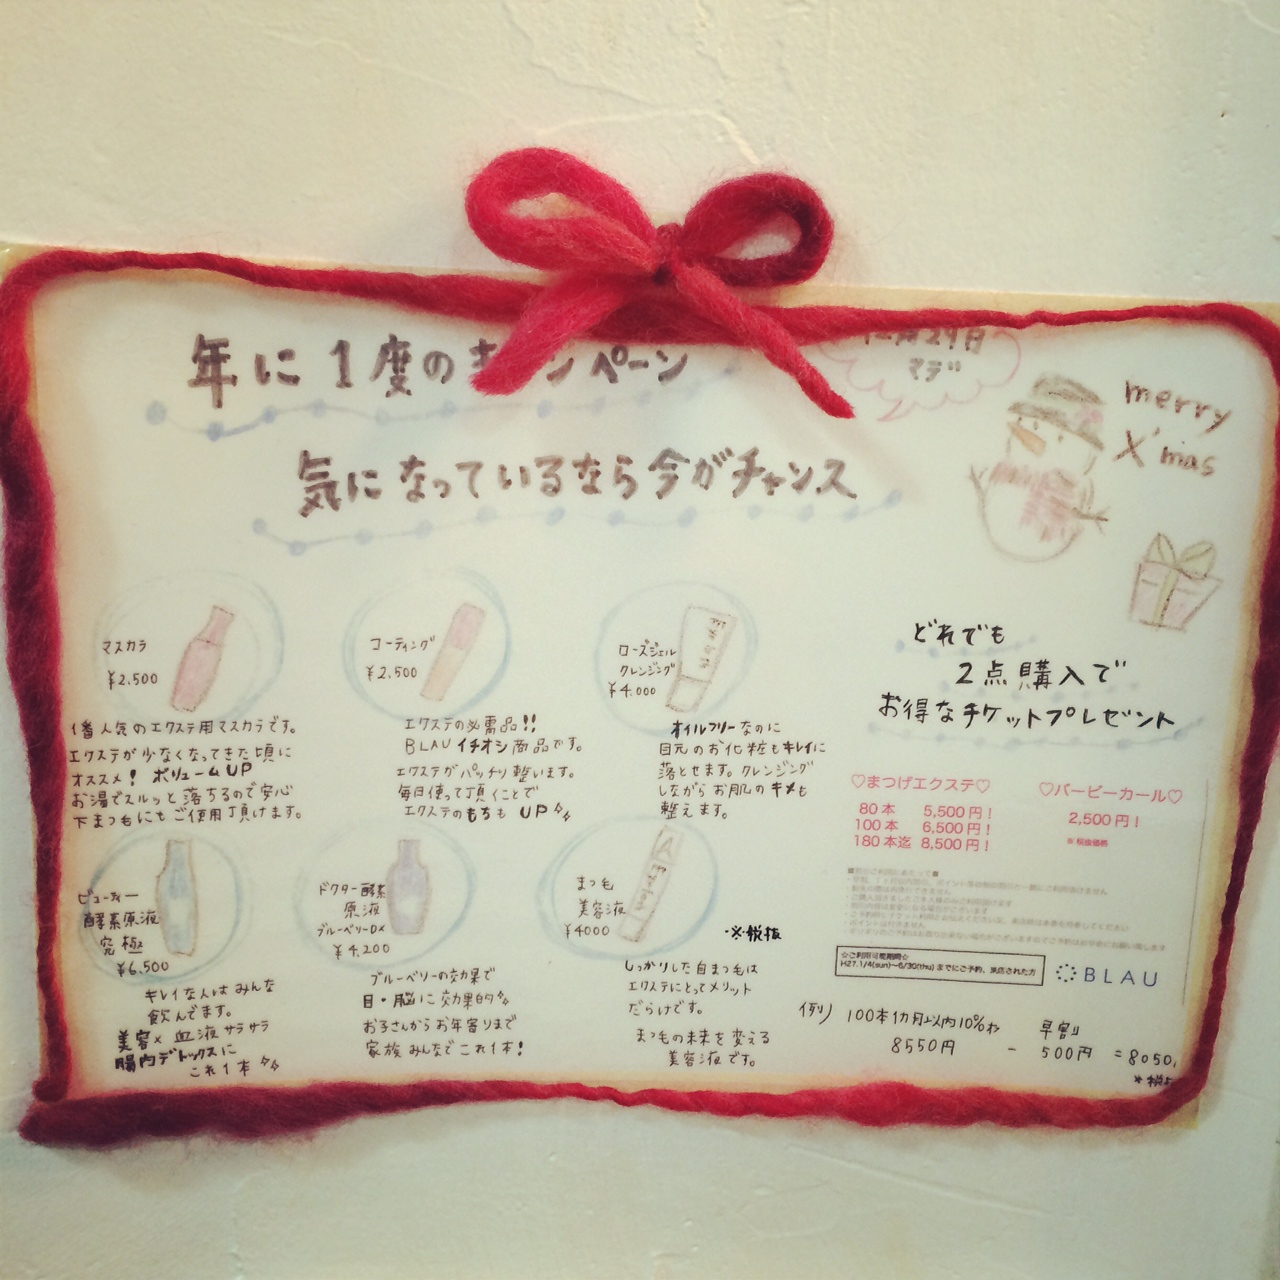 年に1度のキャンペーン
29日
マデ
merry
X'mas
気になっているなら今がチャンス
マスカラ
¥2,500
1番人気のエクステ用マスカラです。
エクステが少なくなってきた頃に
オススメ! ボリュームUP
お湯でスルッと落ちるので安心
下まつ毛にもご使用頂けます。
コーティング
¥2,500
エクステの必需品!!
BLAUイチオシ商品です。
エクステがパッチリ整います。
毎日使って頂くことで
エクステのもちも UP
ローズジェル
クレンジング
¥4,000
オイルフリーなのに
目元のお化粧もキレイに
落とせます。クレンジング
しながらお肌のキメも
整えます。
どれでも
2点購入で
お得なチケットプレゼント
♡まつげエクステ♡
80本 5,500円!
100本 6,500円!
180本迄 8,500円!
♡バービーカール♡
2,500円!
※税抜価格
ビューティー
酵素原液
究極
¥6,500
キレイな人はみんな
飲んでます。
美容× 血液サラサラ
腸内デトックスに
これ1本
ドクター酵素
原液
ブルーベリーDX
¥4,200
ブルーベリーの効果で
目・脳に効果的
お子さんからお年寄りまで
家族みんなでこれ1本!
まつ毛
美容液
¥4000
しっかりした自まつ毛は
エクステにとってメリット
だらけです。
まつもの未来を変える
美容液です。
・※税抜
☆ご利用可能期間☆
H27.1/4(sun)〜6/30(thu)までにご予約、来店された方
BLAU
例) 100本1カ月以内10%
8550円 - 早割 500円 =8050